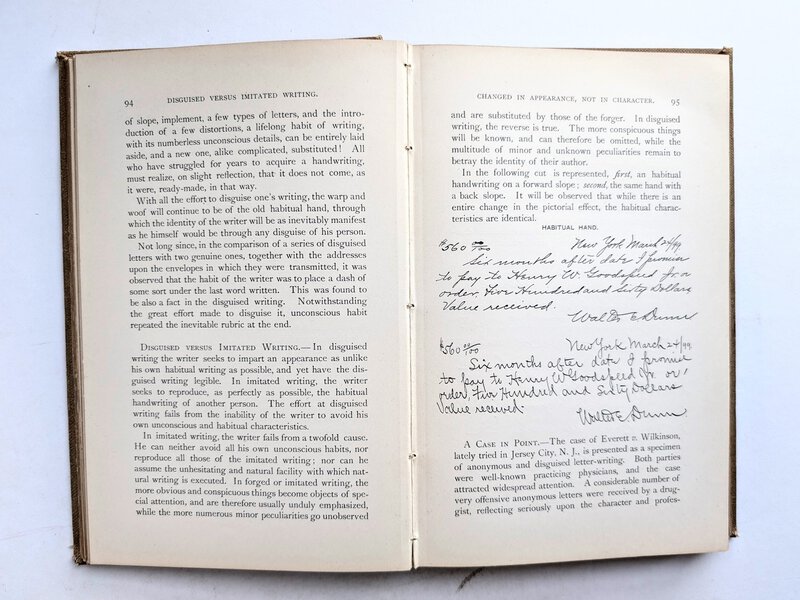 94 DISGUISED VERSUS IMITATED WRITING.
of slope, implement, a few types of letters, and the intro-
duction of a few distortions, a lifelong habit of writing,
with its numberless unconscious details, can be entirely laid
aside, and a new one, alike complicated, substituted! All
who have struggled for years to acquire a handwriting,
must realize, on slight reflection, that it does not come, as
it were, ready-made, in that way.
With all the effort to disguise one's writing, the warp and
woof will continue to be of the old habitual hand, through
which the identity of the writer will be as inevitably manifest
as he himself would be through any disguise of his person.
Not long since, in the comparison of a series of disguised
letters with two genuine ones, together with the addresses
upon the envelopes in which they were transmitted, it was
observed that the habit of the writer was to place a dash of
some sort under the last word written. This was found to
be also a fact in the disguised writing. Notwithstanding
the great effort made to disguise it, unconscious habit
repeated the inevitable rubric at the end.
DISGUISED VERSUS IMITATED WRITING.—In disguised
writing the writer seeks to impart an appearance as unlike
his own habitual writing as possible, and yet have the dis-
guised writing legible. In imitated writing, the writer
seeks to reproduce, as perfectly as possible, the habitual
handwriting of another person. The effort at disguised
writing fails from the inability of the writer to avoid his
own unconscious and habitual characteristics.
In imitated writing, the writer fails from a twofold cause.
He can neither avoid all his own unconscious habits, nor
reproduce all those of the imitated writing; nor can he
assume the unhesitating and natural facility with which nat-
ural writing is executed. In forged or imitated writing, the
more obvious and conspicuous things become objects of spe-
cial attention, and are therefore usually unduly emphasized,
while the more numerous minor peculiarities go unobserved
CHANGED IN APPEARANCE, NOT IN CHARACTER. 95
and are substituted by those of the forger. In disguised
writing, the reverse is true. The more conspicuous things
will be known, and can therefore be omitted, while the
multitude of minor and unknown peculiarities remain to
betray the identity of their author.
In the following cut is represented, first, an habitual
handwriting on a forward slope; second, the same hand with
a back slope. It will be observed that while there is an
entire change in the pictorial effect, the habitual charac-
teristics are identical.
HABITUAL HAND.
$560 00/100 New York March 24/99
Six months after date I promise
to pay to Henry W. Goodspeed Jr. or
order, Five Hundred and Sixty Dollars
Value received.
Walter E. Dunn
$560 00/100 New York March 24/99
Six months after date I promise
to pay to Henry W Goodspeed Jr. or
order, Five Hundred and Sixty Dollars
Value received.
Walter E. Dunn
A CASE IN POINT.—The case of Everett v. Wilkinson,
lately tried in Jersey City, N. J., is presented as a specimen
of anonymous and disguised letter-writing. Both parties
were well-known practicing physicians, and the case
attracted widespread attention. A considerable number of
very offensive anonymous letters were received by a drug-
gist, reflecting seriously upon the character and profes-